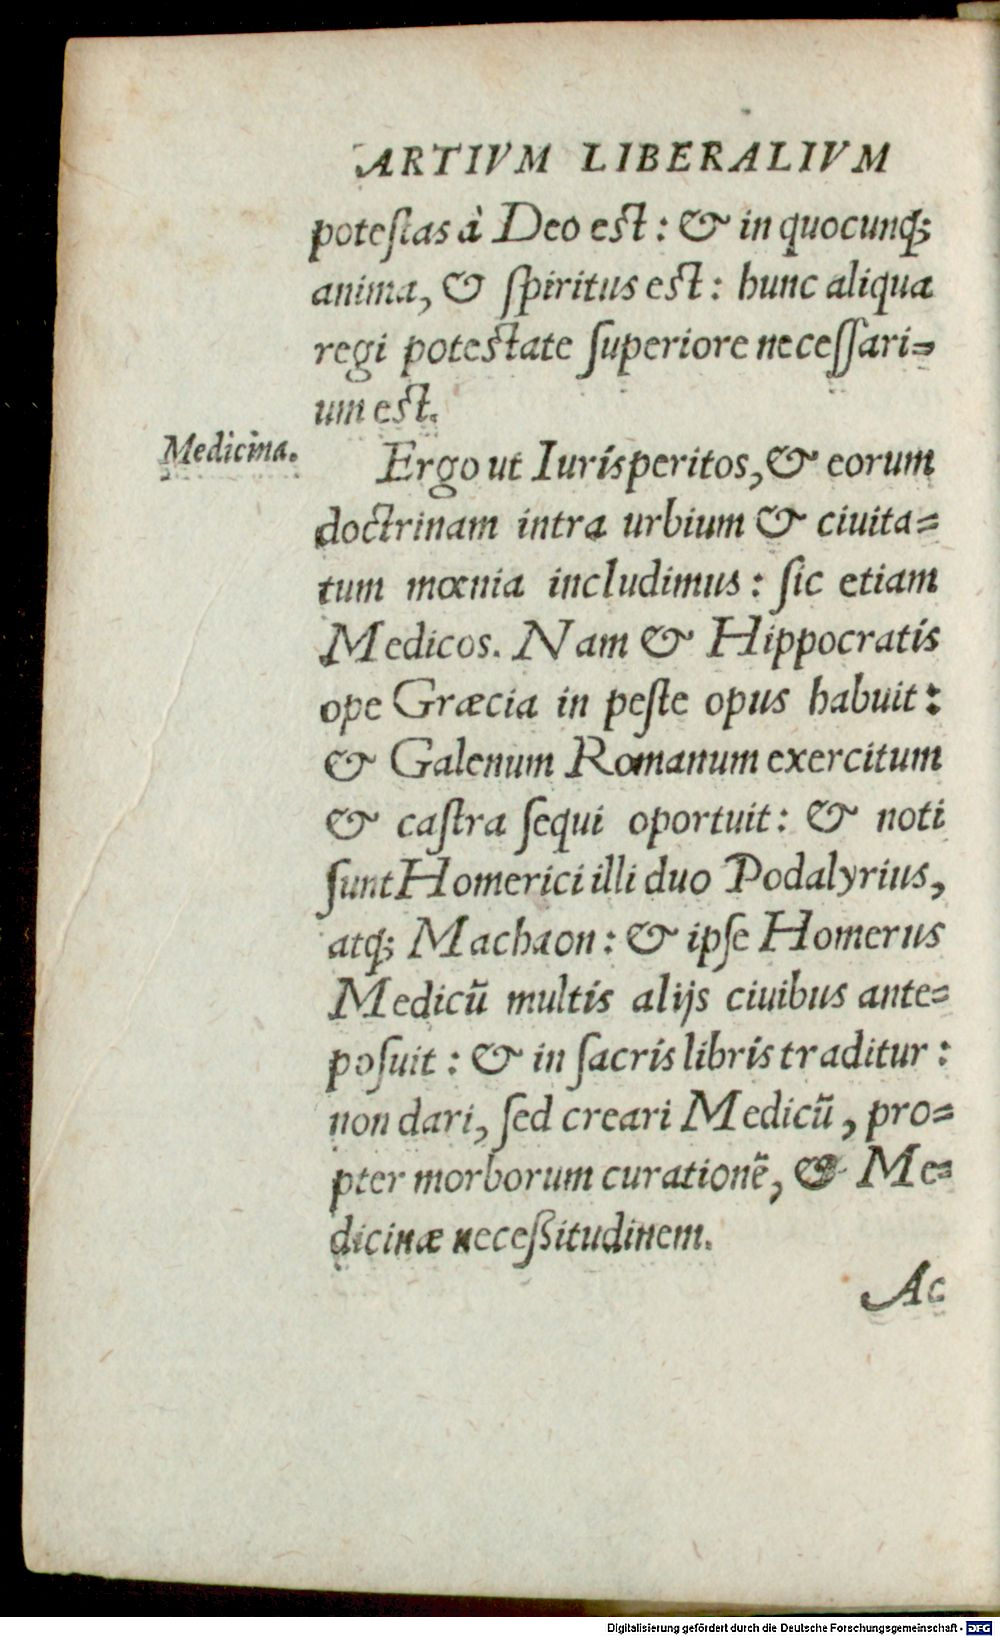 ARTIVM LIBERALIVM
poteſtas à Deo eſt: & in quocunq́;
anima, & ſpiritus eſt: hunc aliqua
regi poteſtate ſuperiore neceſſari=
um eſt.
Medicina.
Ergo ut Iurisperitos, & eorum
doctrinam intra urbium & ciuita=
tum mœnia includimus: ſic etiam
Medicos. Nam & Hippocratis
ope Græcia in peſte opus habuit:
& Galenum Romanum exercitum
& caſtra ſequi oportuit: & noti
ſunt Homerici illi duo Podalyrius,
atq́; Machaon: & ipſe Homerus
Medicū multis alijs ciuibus ante=
poſuit: & in ſacris libris traditur:
non dari, ſed creari Medicū, pro=
pter morborum curationē, & Me=
dicinæ neceßitudinem.
Ac
Digitalisierung gefördert durch die Deutsche Forschungsgemeinschaft - DFG